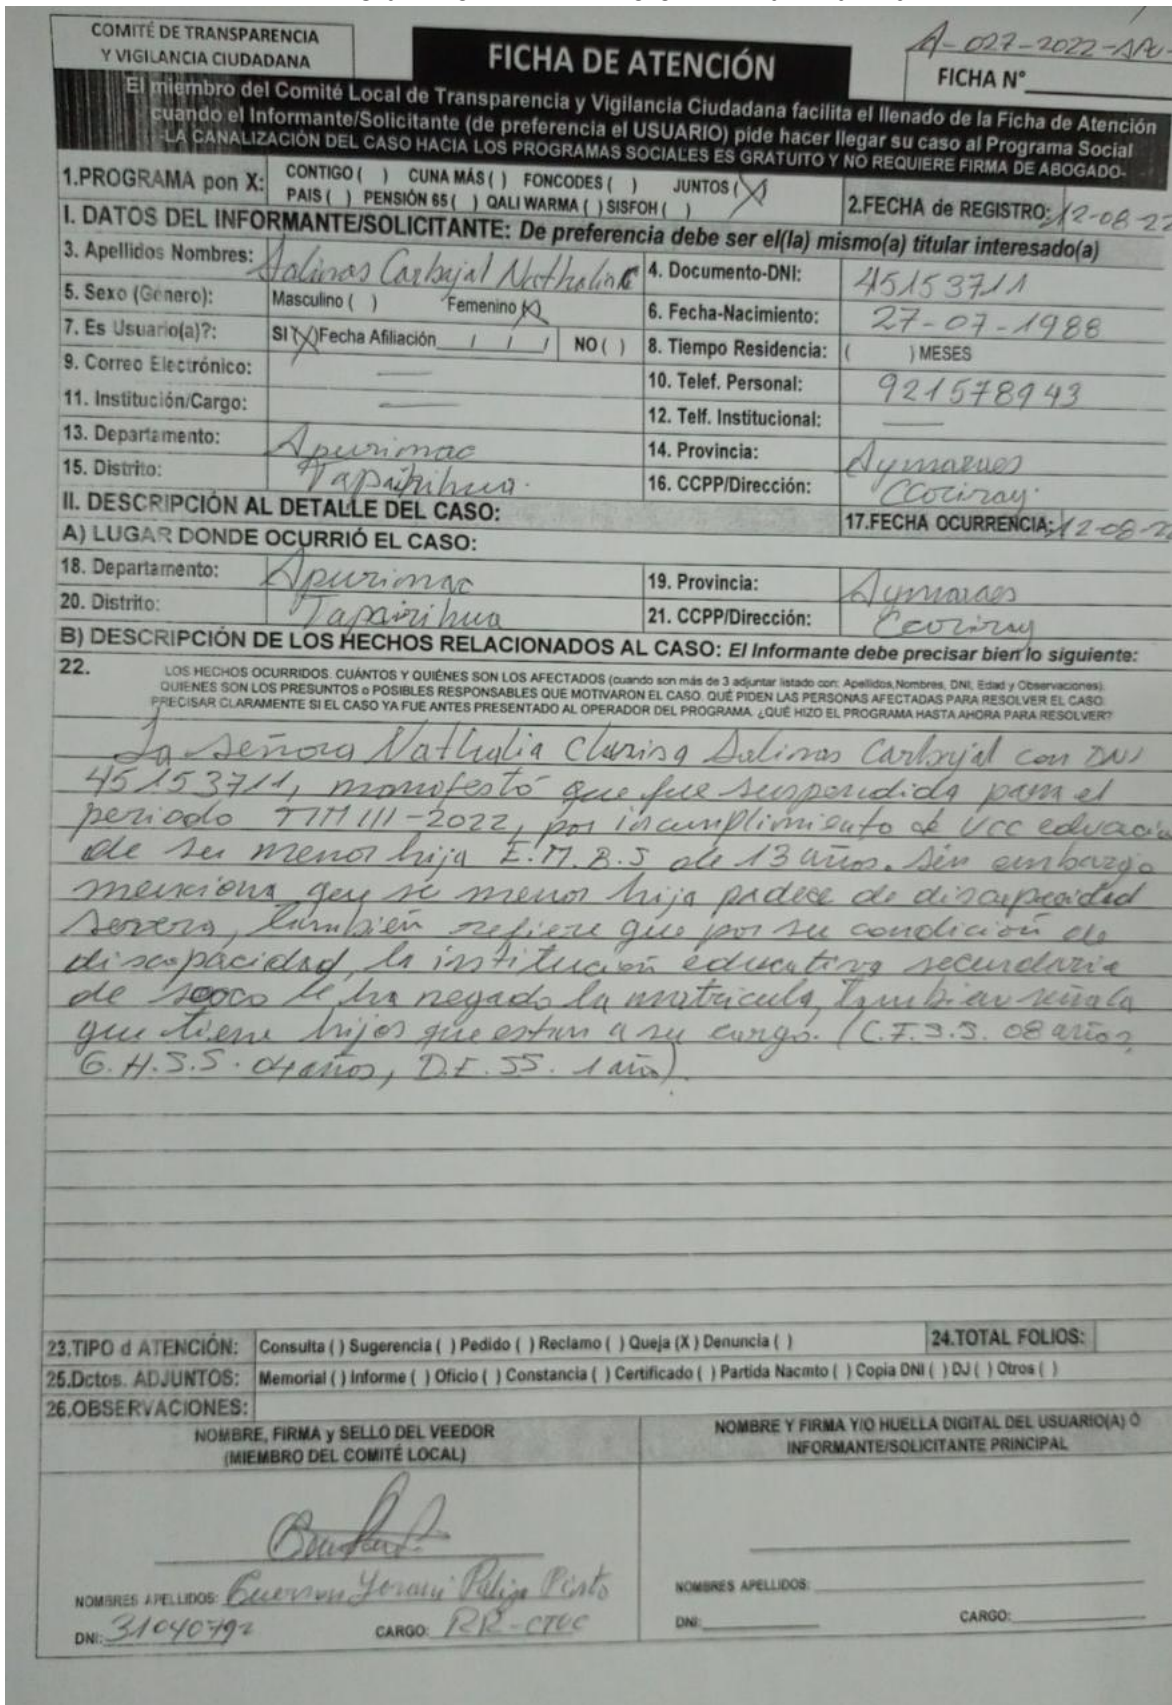 COMITÉ DE TRANSPARENCIA
Y VIGILANCIA CIUDADANA
FICHA DE ATENCIÓN
A-027-2022-APU-
FICHA N°
El miembro del Comité Local de Transparencia y Vigilancia Ciudadana facilita el llenado de la Ficha de Atención
cuando el Informante/Solicitante (de preferencia el USUARIO) pide hacer llegar su caso al Programa Social
-LA CANALIZACIÓN DEL CASO HACIA LOS PROGRAMAS SOCIALES ES GRATUITO Y NO REQUIERE FIRMA DE ABOGADO-
1.PROGRAMA pon X: CONTIGO ( ) CUNA MÁS ( ) FONCODES ( ) JUNTOS (X)
PAIS ( ) PENSIÓN 65 ( ) QALI WARMA ( ) SISFOH ( )
2.FECHA de REGISTRO: 12-08-22
I. DATOS DEL INFORMANTE/SOLICITANTE: De preferencia debe ser el(la) mismo(a) titular interesado(a)
3. Apellidos Nombres: Salinas Carbajal Nathalia 4. Documento-DNI: 45153711
5. Sexo (Género): Masculino ( ) Femenino (X) 6. Fecha-Nacimiento: 27-07-1988
7. Es Usuario(a)?: SI (X) Fecha Afiliación / / / NO ( ) 8. Tiempo Residencia: ( ) MESES
9. Correo Electrónico: — 10. Telef. Personal: 921578943
11. Institución/Cargo: — 12. Telf. Institucional: —
13. Departamento: Apurimac 14. Provincia: Aymaraes
15. Distrito: Tapairihua. 16. CCPP/Dirección: Ccociray.
II. DESCRIPCIÓN AL DETALLE DEL CASO: 17.FECHA OCURRENCIA: 12-08-2
A) LUGAR DONDE OCURRIÓ EL CASO:
18. Departamento: Apurimac 19. Provincia: Aymaraes
20. Distrito: Tapairihua 21. CCPP/Dirección: Ccociray
B) DESCRIPCIÓN DE LOS HECHOS RELACIONADOS AL CASO: El Informante debe precisar bien lo siguiente:
22. LOS HECHOS OCURRIDOS. CUÁNTOS Y QUIÉNES SON LOS AFECTADOS (cuando son más de 3 adjuntar listado con: Apellidos,Nombres, DNI, Edad y Observaciones).
QUIENES SON LOS PRESUNTOS o POSIBLES RESPONSABLES QUE MOTIVARON EL CASO. QUÉ PIDEN LAS PERSONAS AFECTADAS PARA RESOLVER EL CASO.
PRECISAR CLARAMENTE SI EL CASO YA FUE ANTES PRESENTADO AL OPERADOR DEL PROGRAMA. ¿QUÉ HIZO EL PROGRAMA HASTA AHORA PARA RESOLVER?
La señora Nathalia Clarisa Salinas Carbajal con DNI
45153711, manifestó que fue suspendida para el
periodo TIM III-2022, por incumplimiento de VCC educació
de su menor hija E.M.B.S de 13 años. Sin embargo
menciona que su menor hija padece de discapacidad
severa, también refiere que por su condición de
discapacidad, la institución educativa secundaria
de le ha negado la matricula, tambien señala
que tiene hijos que estan a su cargo. (C.F.S.S. 08 años,
G.H.S.S. 04 años, D.E.SS. 1 año)
23.TIPO d ATENCIÓN: Consulta ( ) Sugerencia ( ) Pedido ( ) Reclamo ( ) Queja (X) Denuncia ( ) 24.TOTAL FOLIOS:
25.Dctos. ADJUNTOS: Memorial ( ) Informe ( ) Oficio ( ) Constancia ( ) Certificado ( ) Partida Nacmto ( ) Copia DNI ( ) DJ ( ) Otros ( )
26.OBSERVACIONES:
NOMBRE, FIRMA y SELLO DEL VEEDOR
(MIEMBRO DEL COMITÉ LOCAL)
NOMBRE Y FIRMA Y/O HUELLA DIGITAL DEL USUARIO(A) Ó
INFORMANTE/SOLICITANTE PRINCIPAL
NOMBRES APELLIDOS: Pinto
DNI: 31040792 CARGO: RR-CTVC
NOMBRES APELLIDOS:
DNI: CARGO: